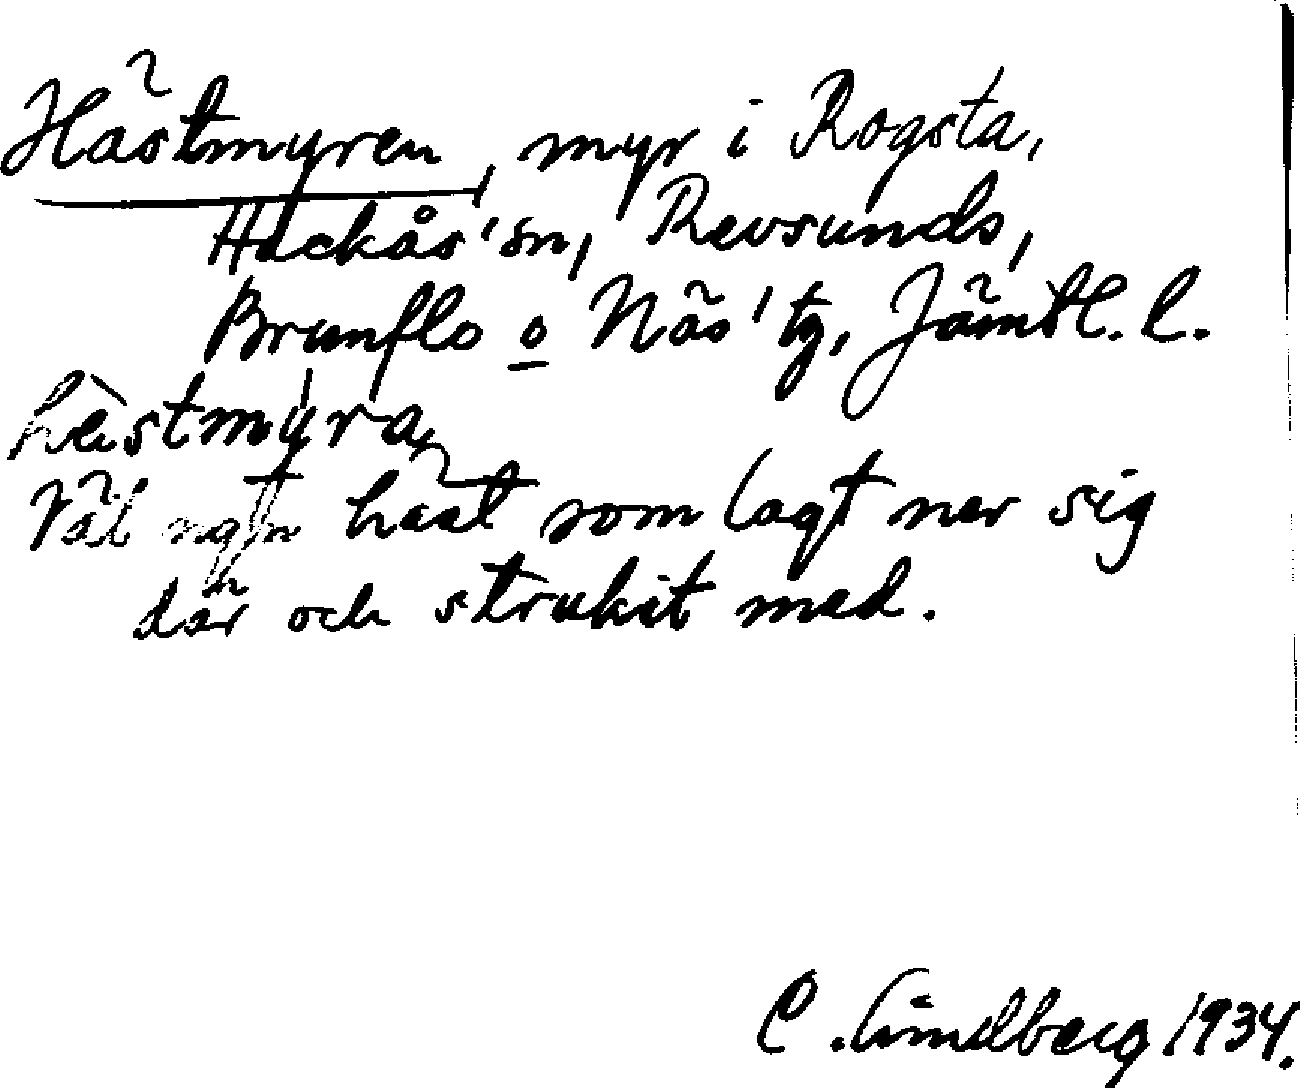 Hästmyren, myr i Rogsta,
Hackås' sn, Revsunds,
Brunflo o Näs' tg, Jämtl. l.
hèstmyra
Väl ngn häst som lagt ner sig
där och strukit med.
C. Lindberg 1934.